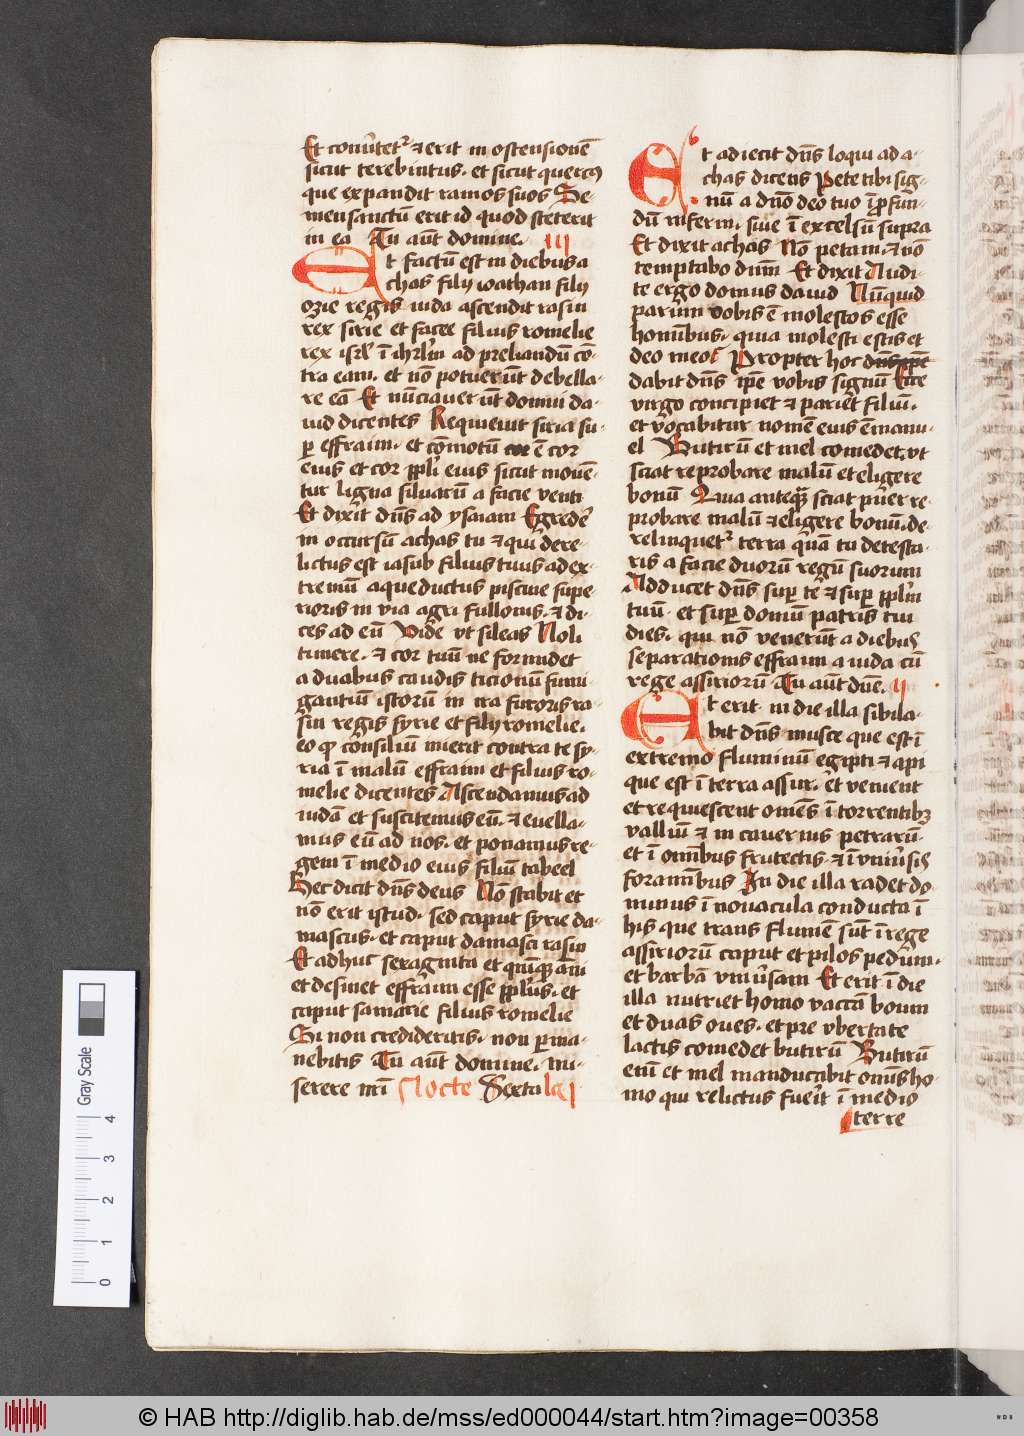 Et conũtet᷑ ⁊ erit in ostensionē
sicut terebintus. et sicut quercꝯ
que expandit ramos suos Se-
men sanctū erit id quod steterit
in ea Tu aūt domine. III
Et factū est in diebus a
chas filij ioathan filij
ozie regis iuda ascendit rasin
rex sirie et facee filius romelie
rex isrl̕ ī ihrl̕m ad preliandū cō-
tra eam. et nō potuerūt debella-
re eā Et nūciauerūt domui da-
uid dicentes Requieuit siria su-
ꝑ effraim. et cōmotū ē cor
eius et cor ppl̕i eius sicut mouē-
tur ligna siluarū a facie venti
Et dixit dn̄s ad ysaiam Egredē
in occursū achas tu ⁊ qui dere-
lictus est iasub filius tuus ad ex-
tremū aqueductus piscine supe-
rioris in via agri fullonis. ⁊ di-
ces ad eū Vide vt sileas Noli
timere. ⁊ cor tuū ne formidet
a duabus caudis ticionū fumi-
gantiū istorū in ira furoris ra-
sin regis syrie et filij romelie.
eo ꝙ consiliū inierit contra te sy-
ria ī malū effraim et filius ro-
melie dicentes Ascendamus ad
iudā et suscitemus eū. ⁊ euella-
mus eū ad nos. et ponamus re-
gem ī medio eius filiū tabeel
Hec dicit dn̄s deus Nō stabit et
nō erit istud. sed caput syrie da-
mascus. et caput damasci rasin
Et adhuc sexaginta et quīqꝫ ani
et desinet effraim esse ppl̕us. et
caput samarie filius romelie
Si non credideritis. non ꝑma-
nebitis Tu aūt domine. mi-
serere mī Nocte Sexta lc̄i
Et adiecit dn̄s loqui ad a-
chas dicens Pete tibi sig-
nū a dn̄o deo tuo ī ꝓfun-
dū inferni. siue ī excelsū supra
Et dixit achas Nō petam. ⁊ nō
temptabo dn̄m Et dixit Audi-
te ergo domus dauid Nūquid
parum vobis ē molestos esse
homībus. quia molesti estis et
deo meo Propter hoc
dabit dn̄s ip̄e vobis signū Ecce
virgo concipiet ⁊ pariet filiū.
et vocabitur nomē eius ēmanu-
el Butirū et mel comedet. vt
sciat reprobare malū et eligere
bonū Quia anteqꝫ sciat puer re-
probare malū ⁊ eligere bonū. de-
relinquet᷑ terra quā tu detesta-
ris a facie duorū regū suorum
Adducet dn̄s suꝑ te ⁊ suꝑ ppl̕m
tuū. et suꝑ domū patris tui
dies. qui nō venerūt a diebus
separationis effraim a iuda cū
rege assiriorū Tu aūt dn̄e. ij
Et erit in die illa sibila-
bit dn̄s musce que est ī
extremo fluminū egipti ⁊ api
que est ī terra assur. et venient
et requiescent omēs ī torrentibꝫ
valliū ⁊ in cauernis petrarū.
et ī omībus frutectis ⁊ ī vniũsis
foramībus In die illa radet do-
minus ī nouacula conducta ī
his que trans flumē sūt ī rege
assiriorū caput et pilos pedūm.
et barbā vniũsam Et erit ī die
illa nutriet homo vaccā boum
et duas oues. et pre vbertate
lactis comedet butirū Butirū
enī et mel manducabit omīs ho-
mo qui relictus fueit ī medio
terre
Gray Scale
0 1 2 3 4
© HAB http://diglib.hab.de/mss/ed000044/start.htm?image=00358